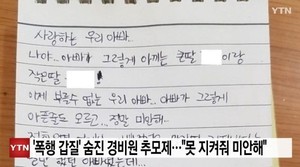 YTN
사랑하는 우리 아빠
나야..아빠가 그렇게 아끼는 큰딸 이랑
작은딸 !
이제 부를수 없는 우리 아빠.. 아빠가 그렇게
아픈줄도 모르고.. 정말 미안해..
YTN '폭행 갑질' 숨진 경비원 추모제…"못 지켜줘 미안해"
했던 아빠였는데..